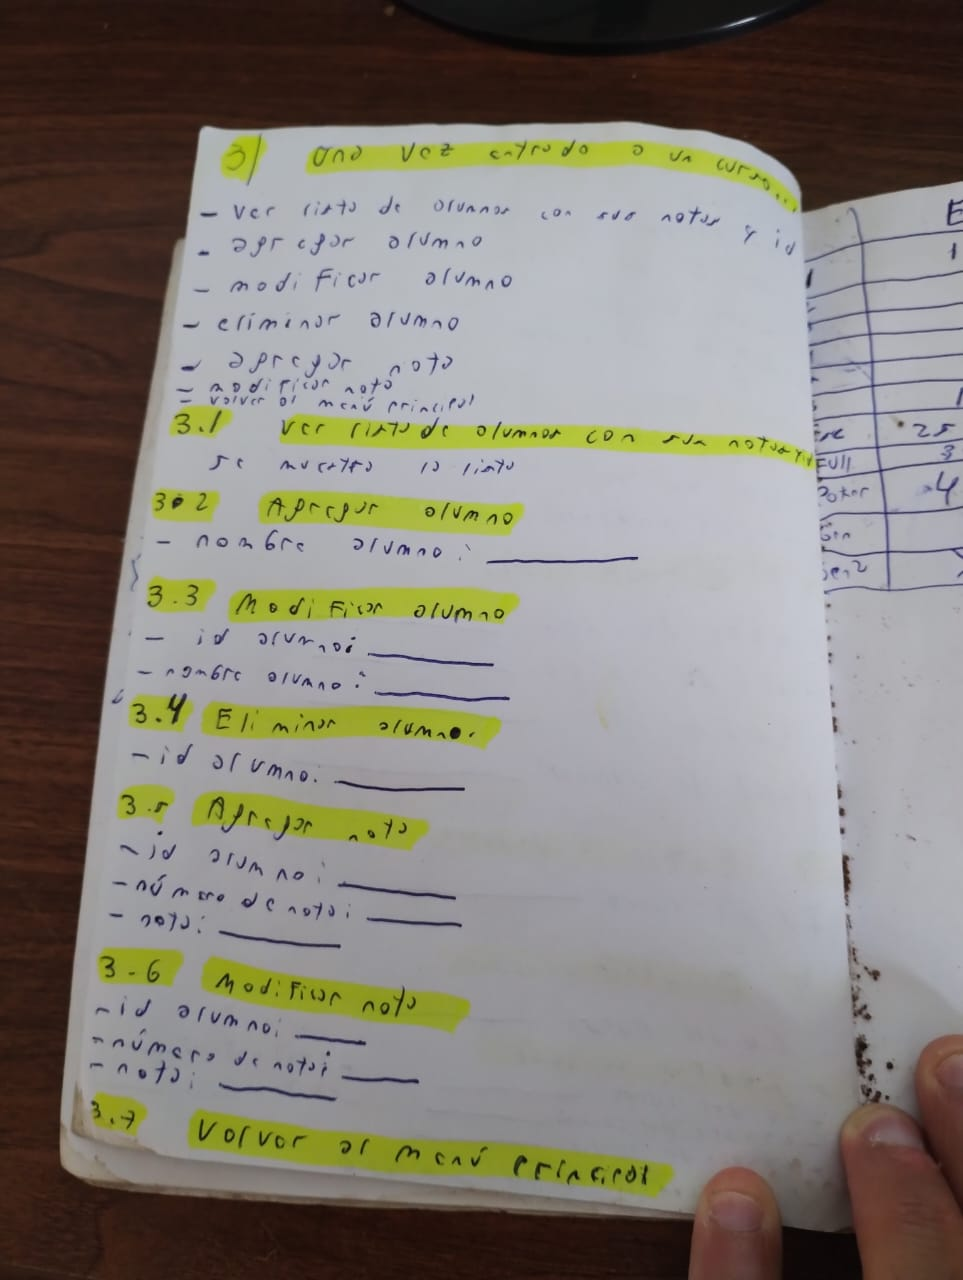 3) una vez entrado a un curso...
- ver lista de alumnos con sus notas y id
- agregar alumno
- modificar alumno
- eliminar alumno
- agregar nota
- modificar nota
- volver al menú principal
3.1 Ver lista de alumnos con sus notas y id
se muestra la lista
3.2 Agregar alumno
- nombre alumno: ________
3.3 Modificar alumno
- id alumno: ________
- nombre alumno: ________
3.4 Eliminar alumno.
- id alumno: ________
3.5 Agregar nota
- id alumno: ________
- número de nota: ________
- nota: ________
3.6 Modificar nota
- id alumno: ________
- número de nota: ________
- nota: ________
3.7 Volver al menú principal
E
1
1
25
Full 3
Poker 4